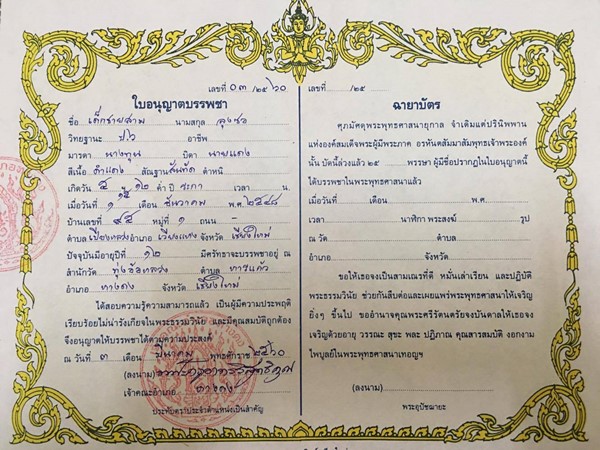 เลขที่ ๐๓ /๒๕ ๖๐
ใบอนุญาตบรรพชา
ชื่อ เด็กชายสาม นามสกุล ลุงซอ
วิทยฐานะ ป๖ อาชีพ
มารดา นางทุน บิดา นายแดง
สีเนื้อ ดำแดง สัณฐาน สันทัด ตำหนิ
เกิดวัน ๕ ๑๒ ค่ำ ปี ระกา เวลา น.
เมื่อวันที่ ๑ เดือน ธันวาคม พ.ศ. ๒๕๔๘
บ้านเลขที่ ๙๕ หมู่ที่ ๑ ถนน -
ตำบล เมืองคอง อำเภอ เวียงแหง จังหวัด เชียงใหม่
ปัจจุบันมีอายุปีที่ ๑๒ มีศรัทธาจะบรรพชาอยู่ ณ
สำนักวัด ทุ่งอ้อหลวง ตำบล หารแก้ว
อำเภอ หางดง จังหวัด เชียงใหม่
ได้สอบความรู้ความสามารถแล้ว เป็นผู้มีความประพฤติ
เรียบร้อยไม่น่ารังเกียจในพระธรรมวินัย และมีคุณสมบัติถูกต้อง
จึงอนุญาตให้บรรพชาได้ตามความประสงค์
ณ วันที่ ๓ เดือน มีนาคม พุทธศักราช ๒๕๖๐
(ลงนาม)
เจ้าคณะอำเภอ หางดง
ประทับตราประจำตำแหน่งเป็นสำคัญ
เลขที่ /๒๕
ฉายาบัตร
ศุภมัศดุพระพุทธศาสนายุกาล จำเดิมแต่ปรินิพพาน
แห่งองค์สมเด็จพระผู้มีพระภาค อรหันตสัมมาสัมพุทธเจ้าพระองค์
นั้น บัดนี้ล่วงแล้ว ๒๕ พรรษา ผู้มีชื่อปรากฏในใบอนุญาตนี้
ได้บรรพชาในพระพุทธศาสนาแล้ว
เมื่อวันที่ เดือน พ.ศ.
เวลา นาฬิกา พระสงฆ์ รูป
ณ วัด ตำบล
อำเภอ จังหวัด
ขอให้เธอจงเป็นสามเณรที่ดี หมั่นเล่าเรียน และปฏิบัติ
พระธรรมวินัย ช่วยกันสืบต่อและเผยแผ่พระพุทธศาสนาให้เจริญ
ยิ่งๆ ขึ้นไป ขออำนาจคุณพระศรีรัตนตรัยจงบันดาลให้เธอจง
เจริญด้วยอายุ วรรณะ สุขะ พละ ปฏิภาณ คุณสารสมบัติ งอกงาม
ไพบูลย์ในพระพุทธศาสนาเทอญฯ
(ลงนาม)
พระอุปัชฌายะ